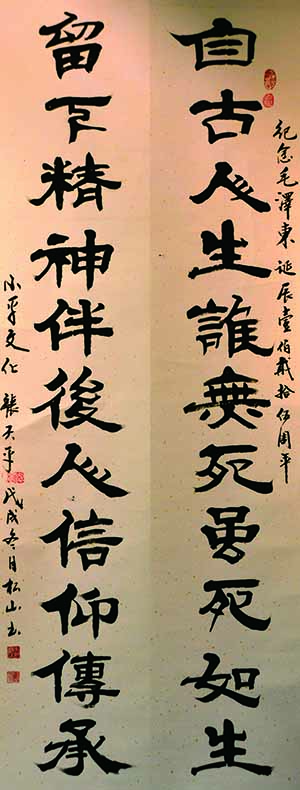 紀念毛澤東誕辰壹佰貳拾伍周年
自古人生誰無死虽死如生
留下精神伴後人信仰傳承
小平文化張天平戊戌冬月松山书